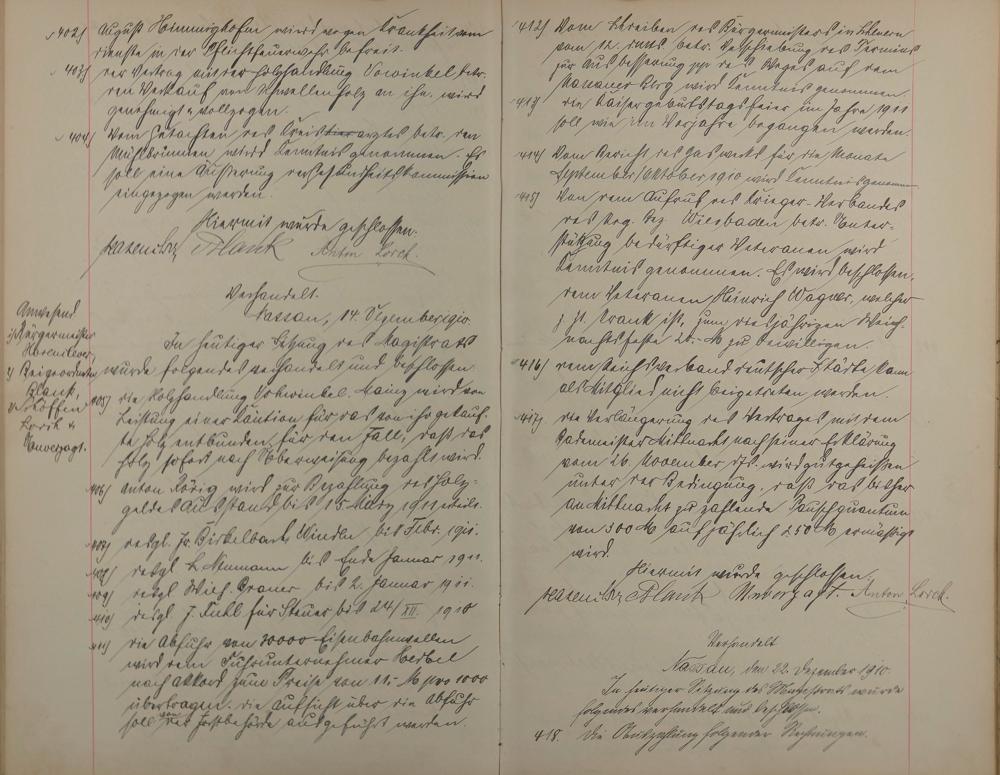 402) August Himmighofen wird wegen Krankheit vom
dienste in der Pflichtfeuerwehr befreit.
403) der Vertrag mit der Holzhandlung Vowinkel betr.
den Verkauf von Schwellenholz an ihn wird
genehmigt & vollzogen.
404) Vom Gutachten des Kreisarztes betr. den
Mühlbrunnen wird Kenntnis genommen. Es
soll eine Äußerung der Gesundheitskommission
eingezogen werden.
Hiermit wurde geschlossen.
Hasenclever Plank Anton Lorch.
Anwesend
Bürgermeister
Hasenclever,
Beigeordneter
Plank,
Lorch &
Unverzagt.
Verhandelt.
Nassau, 14. Dezember 1910.
In heutiger Sitzung des Magistrats
wurde folgendes verhandelt und beschlossen
405) die Holzhandlung Vohwinkel Mainz wird von
Leistung einer Kaution für das von ihr gekauf-
te Holz entbunden, für den Fall, daß das
Holz sofort nach Überweisung bezahlt wird.
406) Anton Rörig wird zur Bezahlung des Holz-
geldes Ausstand bis 15 März 1911 erteilt.
407) desgl. Birkelbach bis Febr. 1911.
408) desgl L. Neumann bis Ende Januar 1911.
409) desgl Wilh. bis 2. Januar 1911.
410) desgl J. für Steuer bis 24/XII. 1910
411) die Abfuhr von 30000 Eisenbahnschwellen
wird dem Fuhrunternehmer Herbel
nach Akkord zum Preise von 11.- M pro 1000
übertragen. die Aufsicht über die Abfuhr
soll von der Forstbehörde ausgeführt werden.
412) Vom Schreiben des Bürgermeisters in
vom 12. betr. Verschiebung des Termins
zur Ausbesserung pp des Weges auf dem
Nassauer Berg wird Kenntnis genommen.
413) die Kaisergeburtstagsfeier im Jahre 1911
soll wie im Vorjahre begangen werden.
414) Vom Bericht des Gaswerks für die Monate
September/Oktober 1910 wird Kenntnis genommen
415) Von dem Aufruf des Krieger-Verbandes
des Reg. Bez. Wiesbaden betr. Unter-
stützung bedürftiger Veteranen wird
Kenntnis genommen. Es wird beschlossen,
dem Veteranen Heinrich Wagner, welcher
z. Zt. krank ist, zum diesjährigen Weih-
nachtsfeste 25.- M zu bewilligen.
416) dem Reichsverband deutscher Städte kann
als Mitglied nicht beigetreten werden.
417) die Verlängerung des Vertrages mit dem
Bademeister Mittnacht nach seiner Erklärung
vom 26. November ds. wird gutgeheissen
unter der Bedingung, daß das bisher
an Mittnacht zu zahlende Pauschquantum
von 300 M auf jährlich 250 M ermäßigt
wird.
Hiermit wurde geschlossen.
Hasenclever Plank Unverzagt. Anton Lorch.
Verhandelt
Nassau, den 22. Dezember 1910.
In heutiger Sitzung des Magistrats wurde
folgendes verhandelt und beschlossen.
418. Die Auszahlung folgender Rechnungen.